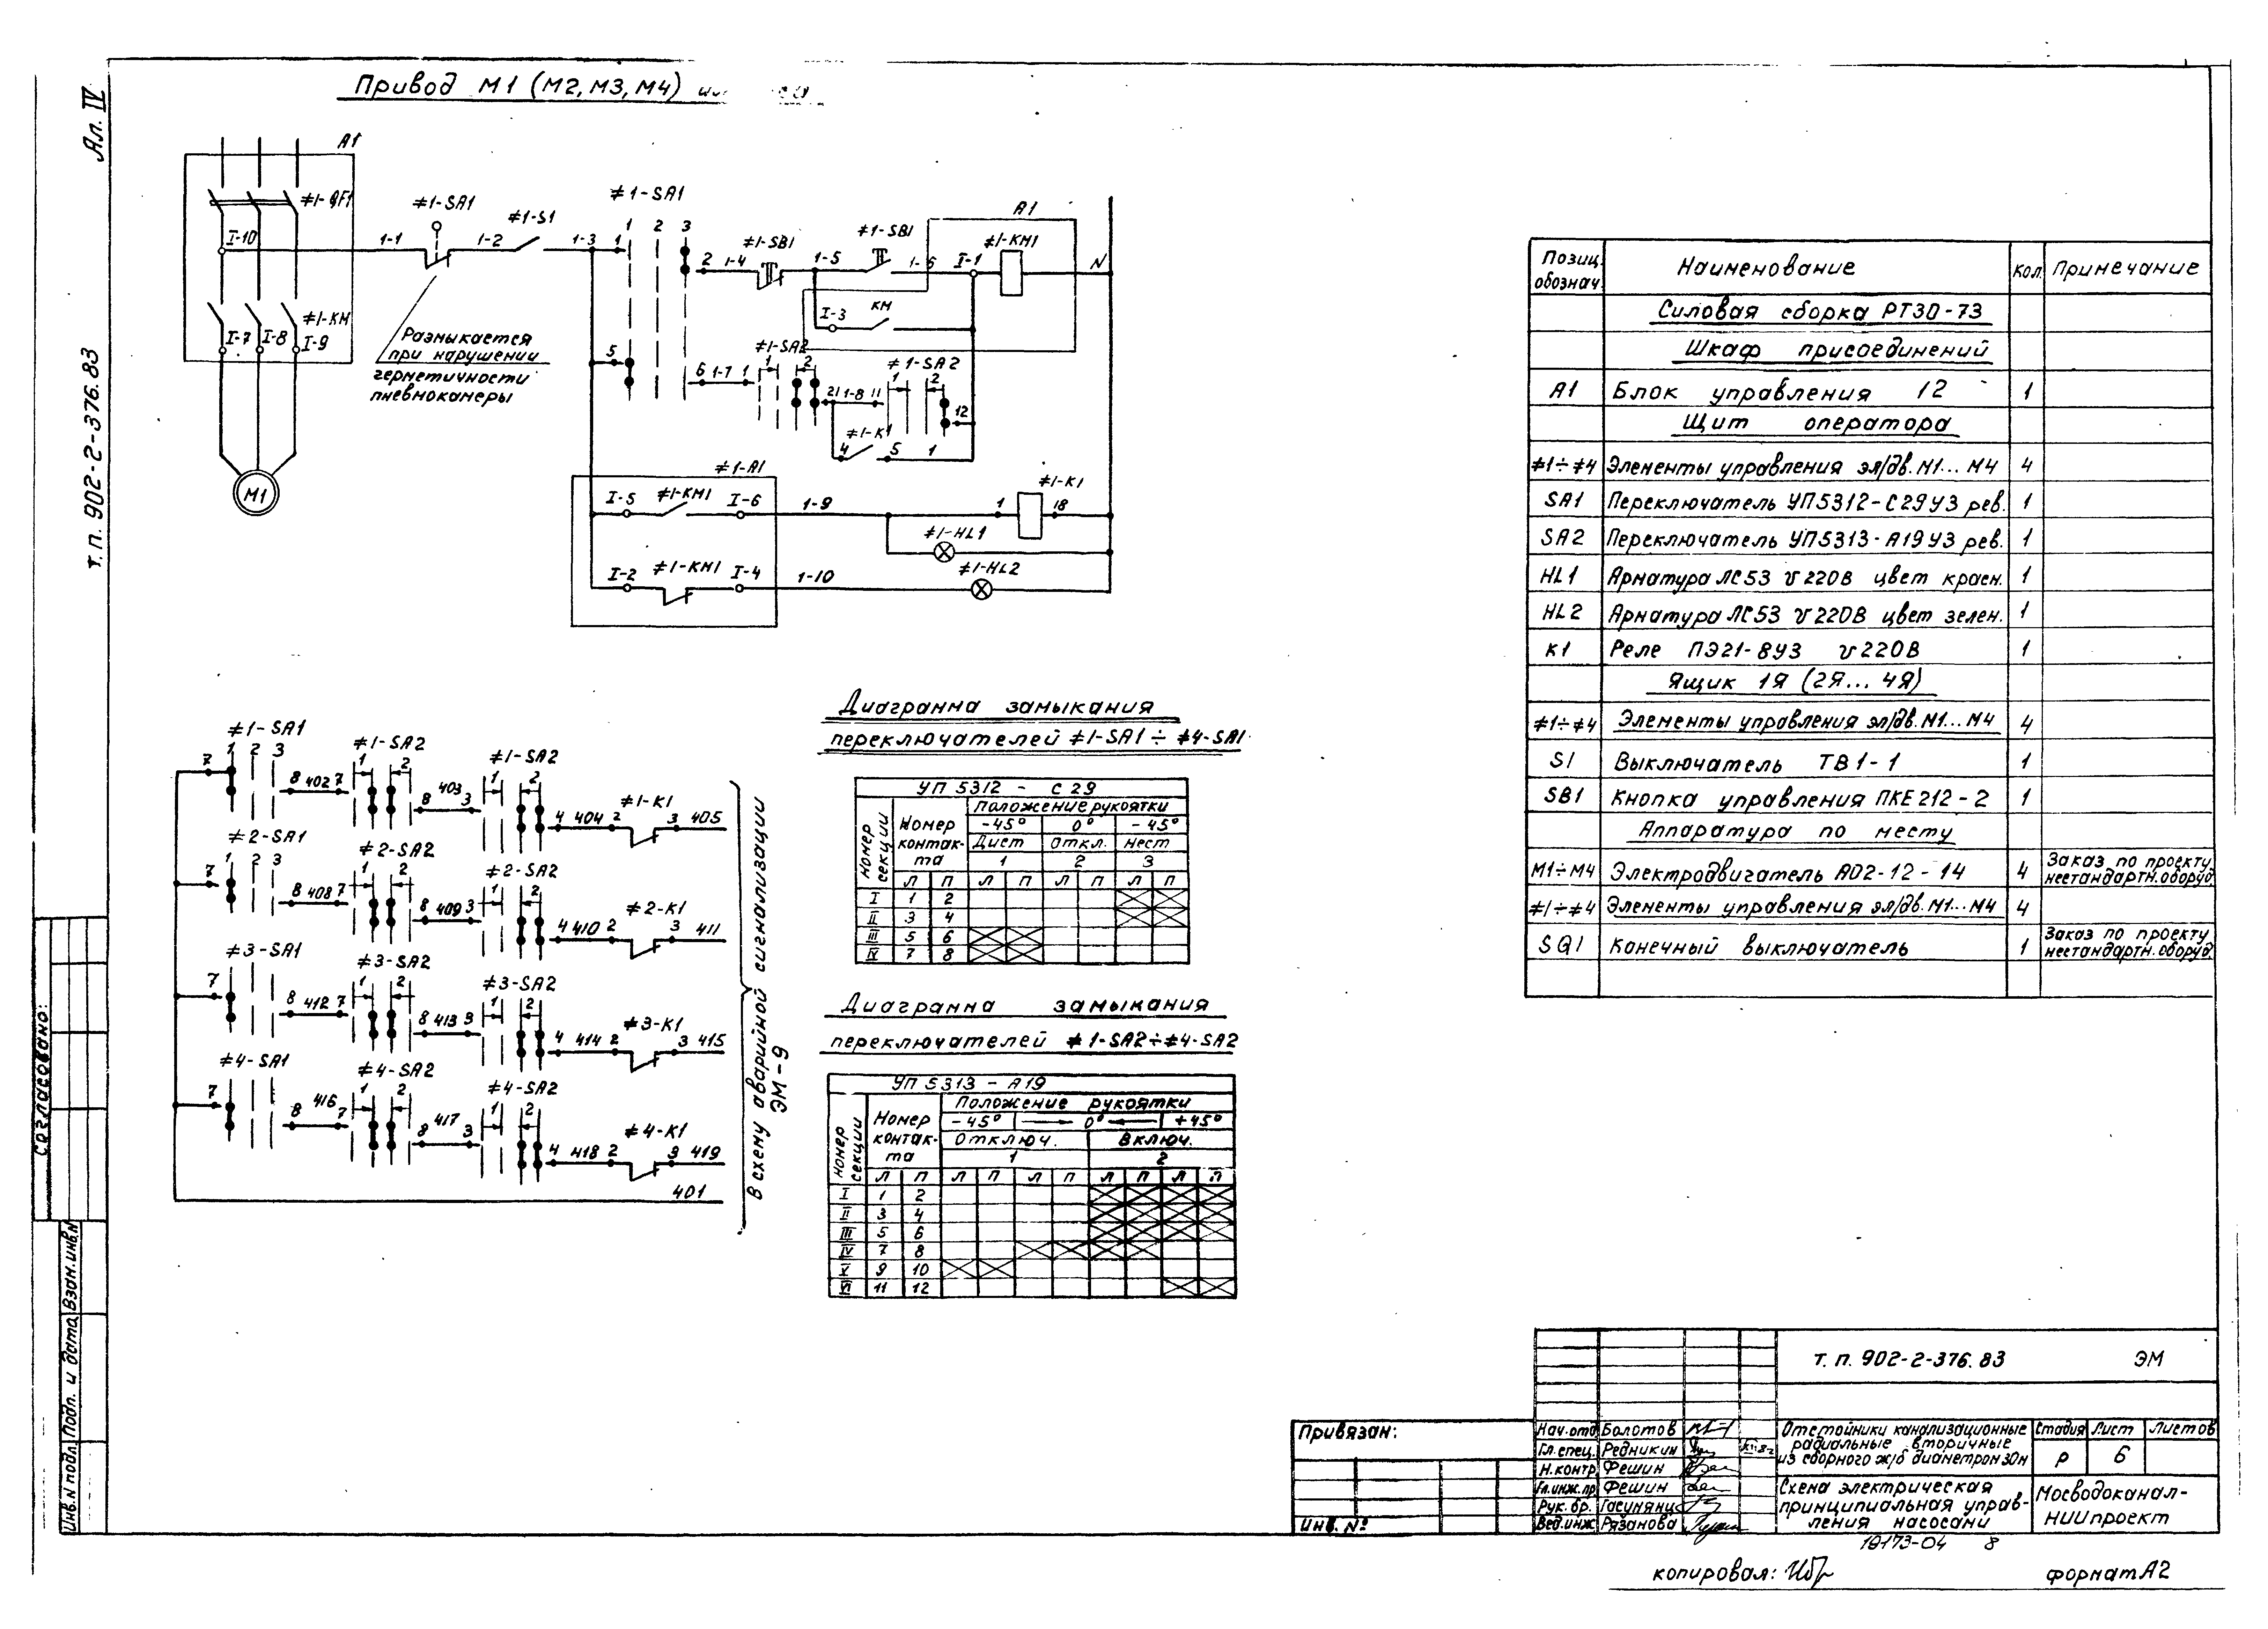 Ал. IV
т.п. 902-2-376.83
Привод М1 (М2, М3, М4)
А1
≠1-QF1
I-10
≠1-КМ
I-7 I-8 I-9
М1
1-1
≠1-SA1
1-2
≠1-S1
1-3
Размыкается
при нарушении
герметичности
пневмокамеры
≠1-SA1
1 2 3
1
2 1-4
≠1-SB1
1-5
≠1-SB1
1-6
I-1
А1
≠1-КМ1
N
I-3
КМ
5
6 1-7 1
≠1-SA2
2
21 1-8 11
≠1-SA2
1 2
12
≠1-К1
4 5 1
≠1-А1
I-5 ≠1-КМ1 I-6
1-9
1 18
≠1-К1
≠1-HL1
I-2 ≠1-КМ1 I-4
1-10
≠1-HL2
≠1-SA1
7 1 2 3
8 402 7
≠1-SA2
1 2
8 403 3
≠1-SA2
1 2
4 404 2
≠1-К1
3 405
≠2-SA1
7 1 2 3
8 408 7
≠2-SA2
1 2
8 409 3
≠2-SA2
1 2
4 410 2
≠2-К1
3 411
≠3-SA1
7
8 412 7
≠3-SA2
1 2
8 413 3
≠3-SA2
1 2
4 414 2
≠3-К1
3 415
≠4-SA1
7
8 416 7
≠4-SA2
1 2
8 417 3
≠4-SA2
1 2
4 418 2
≠4-К1
9 419
401
В схему аварийной сигнализации
ЭМ-9
Диаграмма замыкания
переключателей ≠1-SA1 ÷ ≠4-SA1
УП 5312 - С 29
Номер секции
Номер контак-та
Положение рукоятки
-45° 0° -45°
Дист Откл. Мест
1 2 3
Л П Л П Л П Л П
I 1 2
II 3 4
III 5 6
IV 7 8
Диаграмма замыкания
переключателей ≠1-SA2÷≠4-SA2
УП 5313 - А19
Номер секции
Номер контак-та
Положение рукоятки
-45° 0° +45°
Отключ. Включ.
1 2
Л П Л П Л П Л П Л П
I 1 2
II 3 4
III 5 6
IV 7 8
V 9 10
VI 11 12
Позиц. обознач. Наименование Кол. Примечание
Силовая сборка РТ30-73
Шкаф присоединений
А1 Блок управления 12 1
Щит оператора
≠1÷≠4 Элементы управления эл/дв. М1...М4 4
SA1 Переключатель УП5312-С29У3 рев. 1
SA2 Переключатель УП5313-А19У3 рев. 1
HL1 Арматура ЛС53 ~220В цвет красн. 1
HL2 Арматура ЛС53 ~220В цвет зелен. 1
К1 Реле ПЭ21-8У3 ~220В 1
Ящик 1Я (2Я...4Я)
≠1÷≠4 Элементы управления эл/дв. М1...М4 4
S1 Выключатель ТВ1-1 1
SB1 Кнопка управления ПКЕ212-2 1
Аппаратура по месту
М1÷М4 Электродвигатель АО2-12-14 4 Заказ по проекту нестандартн. оборуд.
≠1÷≠4 Элементы управления эл/дв. М1...М4 4
SQ1 Конечный выключатель 1 Заказ по проекту нестандартн. оборуд.
Согласовано:
Инв. N подл. Подп. и дата Взам. инв. N
Привязан:
Инв. №
т. п. 902-2-376.83 ЭМ
Нач. отд Болотов
Гл. спец. Редникин
Н. контр Фешин
Гл. инж. пр Фешин
Рук. бр. Гасумянц
Вед. инж Рязанова
Отстойники канализационные
радиальные вторичные
из сборного ж/б диаметром 30м
Стадия Лист Листов
Р 6
Схема электрическая
принципиальная управ-
ления насосами
Мосводоканал-
НИИпроект
19173-04 8
копировал:
формат А2